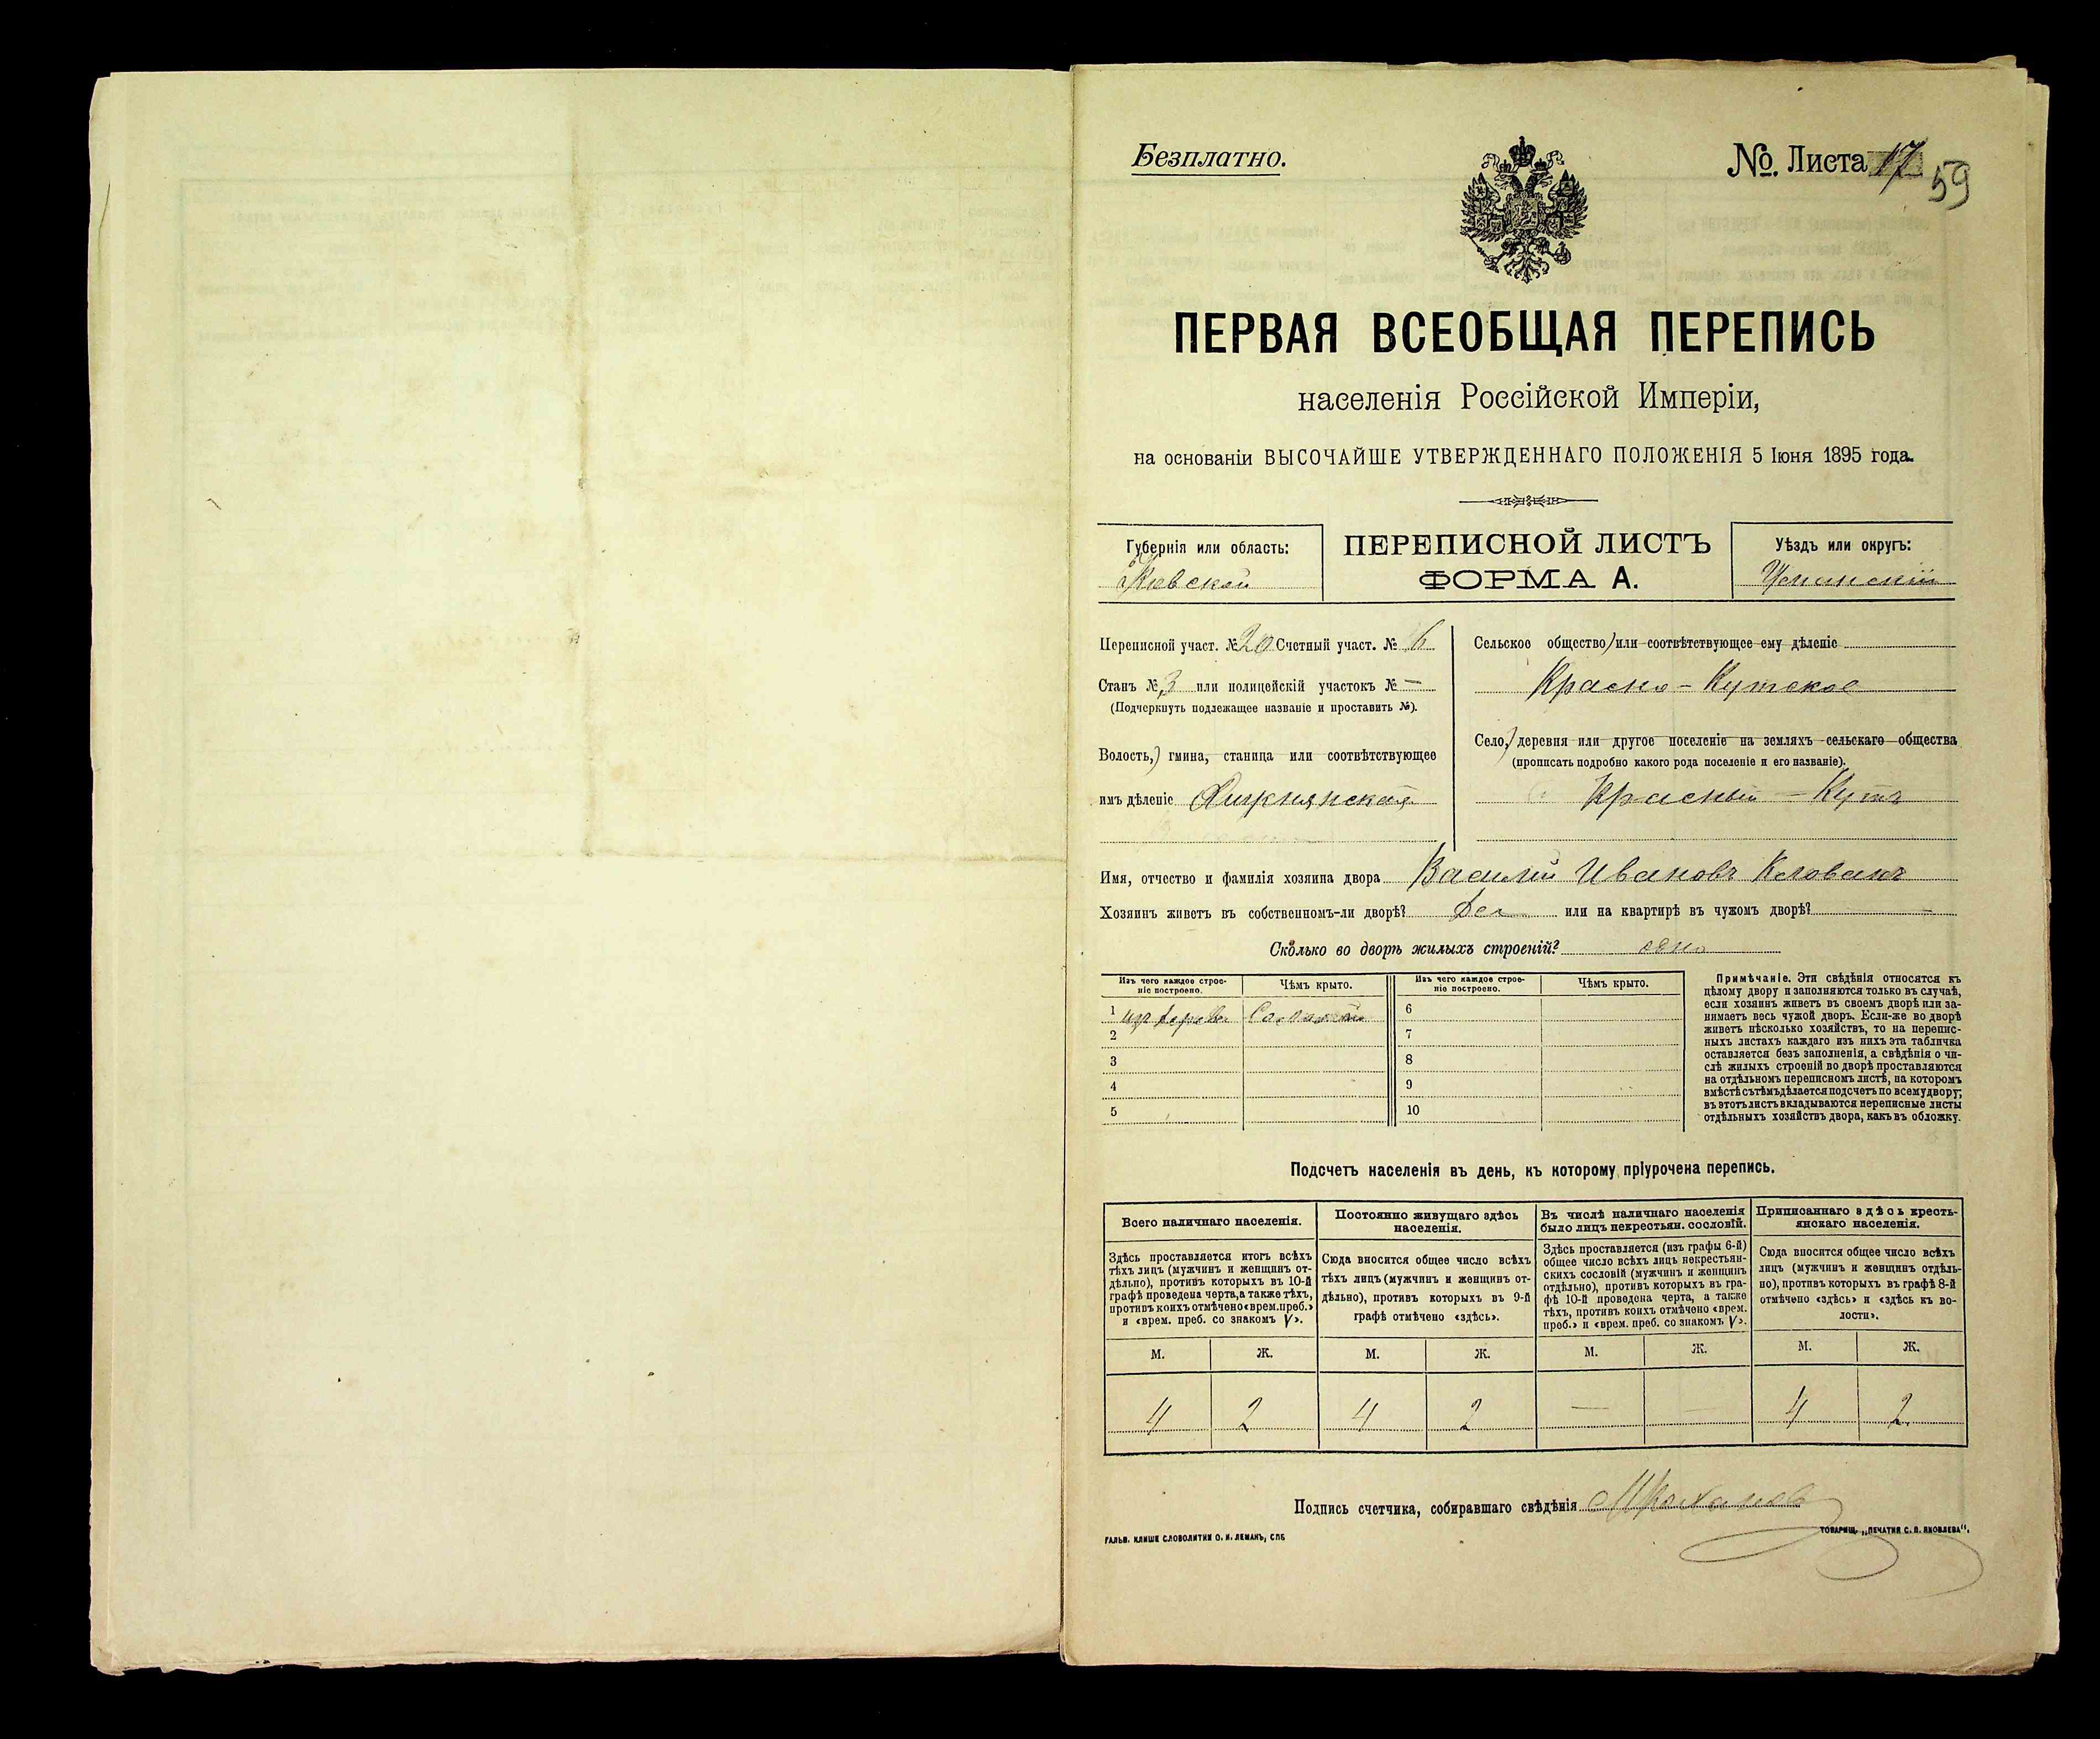 Безплатно.
№. Листа 17
59
ПЕРВАЯ ВСЕОБЩАЯ ПЕРЕПИСЬ
населенія Россійской Имперіи,
на основаніи ВЫСОЧАЙШЕ УТВЕРЖДЕННАГО ПОЛОЖЕНІЯ 5 Іюня 1895 года.
Губернія или область:
Кіевской
ПЕРЕПИСНОЙ ЛИСТЪ
ФОРМА А.
Уѣздъ или округъ:
Уманскій
Переписной участ. № 20 Счетный участ. № 6
Станъ № 3 или полицейскій участокъ № —
(Подчеркнуть подлежащее названіе и проставить №).
Волость,) гмина, станица или соотвѣтствующее
имъ дѣленіе
Сельское общество/или соотвѣтствующее ему дѣленіе
Красно-Кутское
Село,) деревня или другое поселеніе на земляхъ сельскаго общества
(прописать подробно какого рода поселеніе и его названіе).
Красный-Кутъ
Имя, отчество и фамилія хозяина двора Василій Ивановъ
Хозяинъ живетъ въ собственномъ-ли дворѣ? Да или на квартирѣ въ чужомъ дворѣ? —
Сколько во дворѣ жилыхъ строеній? одно
Изъ чего каждое строе-
ніе построено.
Чѣмъ крыто.
Изъ чего каждое строе-
ніе построено.
Чѣмъ крыто.
1 изъ дерева Соломой 6
2 7
3 8
4 9
5 10
Примѣчаніе. Эти свѣдѣнія относятся къ
цѣлому двору и заполняются только въ случаѣ,
если хозяинъ живетъ въ своемъ дворѣ или за-
нимаетъ весь чужой дворъ. Если-же во дворѣ
живетъ нѣсколько хозяйствъ, то на перепис-
ныхъ листахъ каждаго изъ нихъ эта табличка
оставляется безъ заполненія, а свѣдѣнія о чи-
слѣ жилыхъ строеній во дворѣ проставляются
на отдѣльномъ переписномъ листѣ, на которомъ
вмѣстѣ съ тѣмъ дѣлается подсчетъ по всему двору;
въ этотъ листъ вкладываются переписные листы
отдѣльныхъ хозяйствъ двора, какъ въ обложку.
Подсчетъ населенія въ день, къ которому пріурочена перепись.
Всего наличнаго населенія.
Здѣсь проставляется итогъ всѣхъ
тѣхъ лицъ (мужчинъ и женщинъ от-
дѣльно), противъ которыхъ въ 10-й
графѣ проведена черта, а также тѣхъ,
противъ коихъ отмѣчено «врем. преб.»
и «врем. преб. со знакомъ V».
Постоянно живущаго здѣсь
населенія.
Сюда вносится общее число всѣхъ
тѣхъ лицъ (мужчинъ и женщинъ от-
дѣльно), противъ которыхъ въ 9-й
графѣ отмѣчено «здѣсь».
Въ числѣ наличнаго населенія
было лицъ некрестьян. сословій.
Здѣсь проставляется (изъ графы 6-й)
общее число всѣхъ лицъ некрестьян-
скихъ сословій (мужчинъ и женщинъ
отдѣльно), противъ которыхъ въ гра-
фѣ 10-й проведена черта, а также
тѣхъ, противъ коихъ отмѣчено «врем.
преб.» и «врем. преб. со знакомъ V».
Приписаннаго здѣсь кресть-
янскаго населенія.
Сюда вносится общее число всѣхъ
лицъ (мужчинъ и женщинъ отдѣль-
но), противъ которыхъ въ графѣ 8-й
отмѣчено «здѣсь» и «здѣсь къ во-
лости».
М. Ж. М. Ж. М. Ж. М. Ж.
4 2 4 2 — — 4 2
Подпись счетчика, собиравшаго свѣдѣнія
ГАЛЬВ. КЛИШЕ СЛОВОЛИТНИ О. И. ЛЕМАНЪ, СПБ
ТОВАРИЩ. „ПЕЧАТНЯ С. П. ЯКОВЛЕВА".